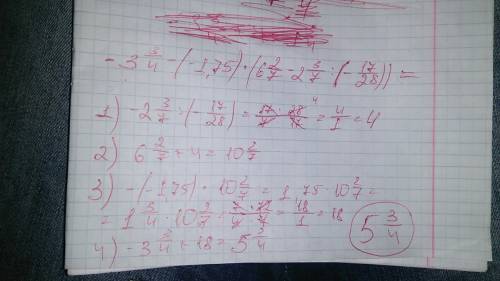 -3 3/4 - (-1,75) · (6 2/7 - 2 3/7 : (-17/28)) =
1) -2 3/7 : (-17/28) = 17/7 · 28/17 = 4/1 = 4
2) 6 2/7 + 4 = 10 2/7
3) -(-1,75) · 10 2/7 = 1,75 · 10 2/7 =
= 1 3/4 · 10 2/7 = 7·72/4·7 = 18/1 = 18
4) -3 3/4 + 18 = 5 3/4
5 3/4